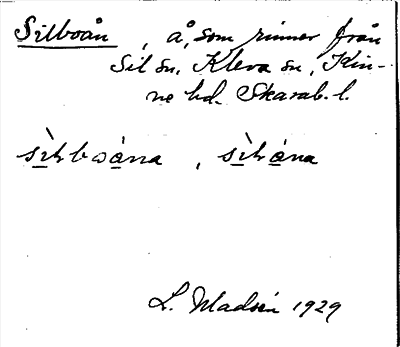 Silboån, å, som rinner från
Sil sn, Kleva sn, Kin-
ne hd. Skarab. l.
L. Madsén 1929